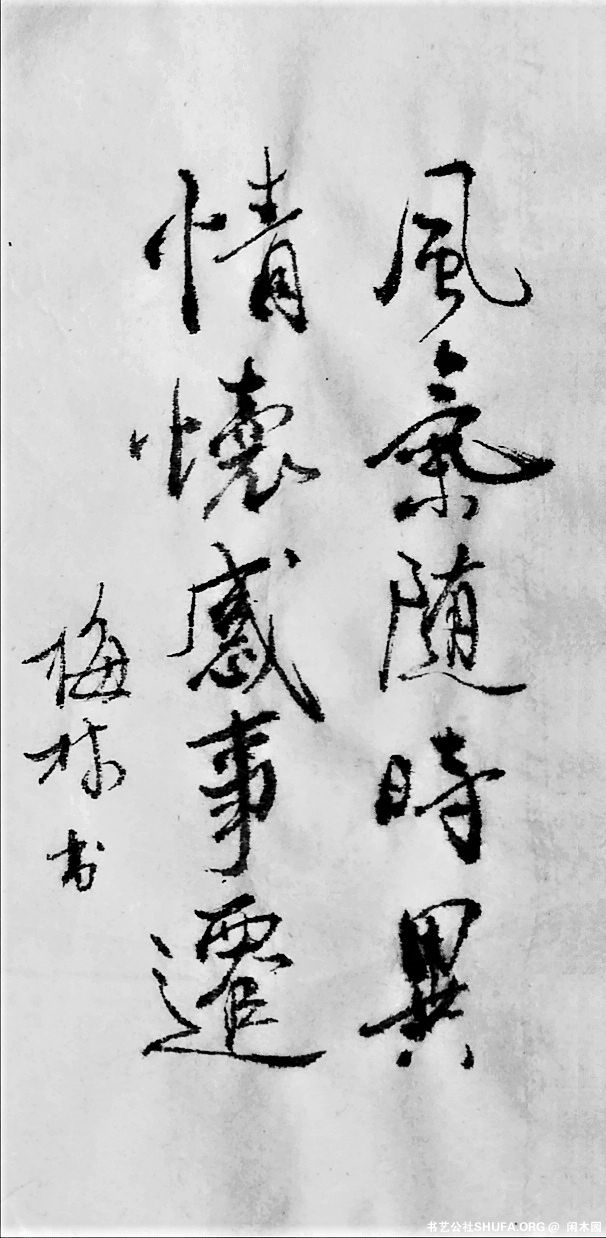 風氣随時異
情懷感事遷
梅林书
书艺公社SHUFA.ORG @ 闲木园